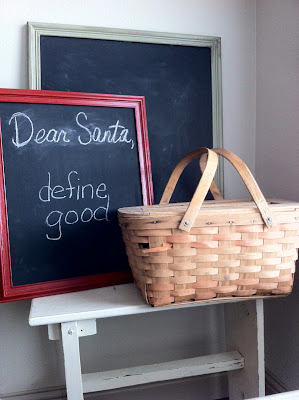 Dear Santa,
define
good